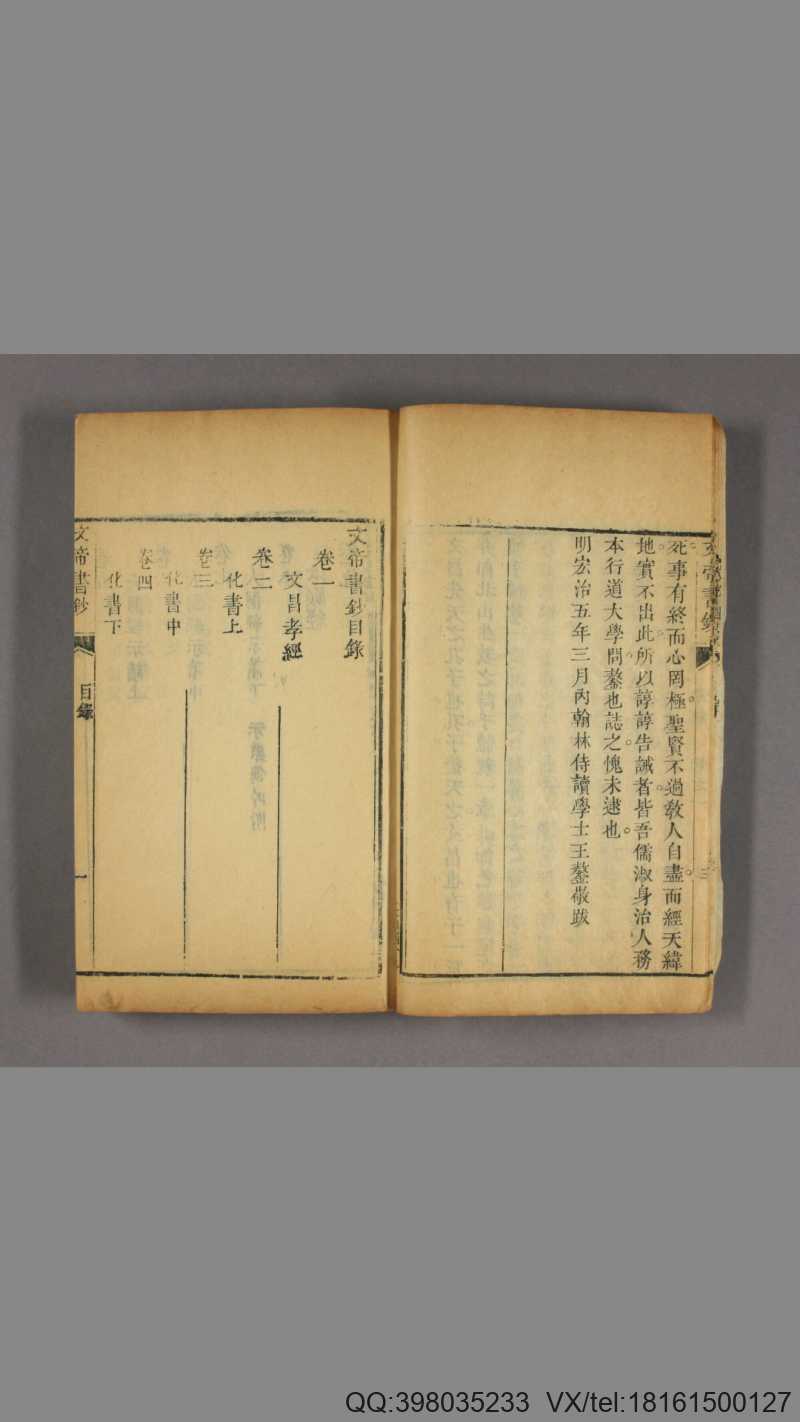 死事有終而心罔極聖賢不過敎人自盡而經天緯
地實不出此所以諄諄告誡者皆吾儒淑身治人務
本行道大學問鏊也誌之愧未逮也
明宏治五年三月內翰林侍讀學士王鏊敬跋
文帝書鈔目錄
卷一
文昌孝經
卷二
化書上
卷三
化書中
卷四
化書下
文帝書鈔
目錄
一
QQ:398035233 VX/tel:18161500127